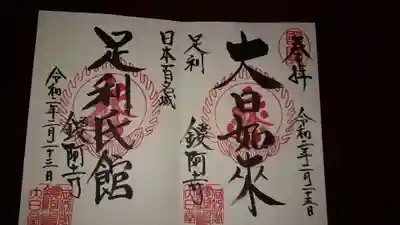 奉拝
大日如来
令和二年二月二十三日
足利
鑁阿寺
日本百名城
足利氏館
鑁阿寺
令和二年二月二十三日